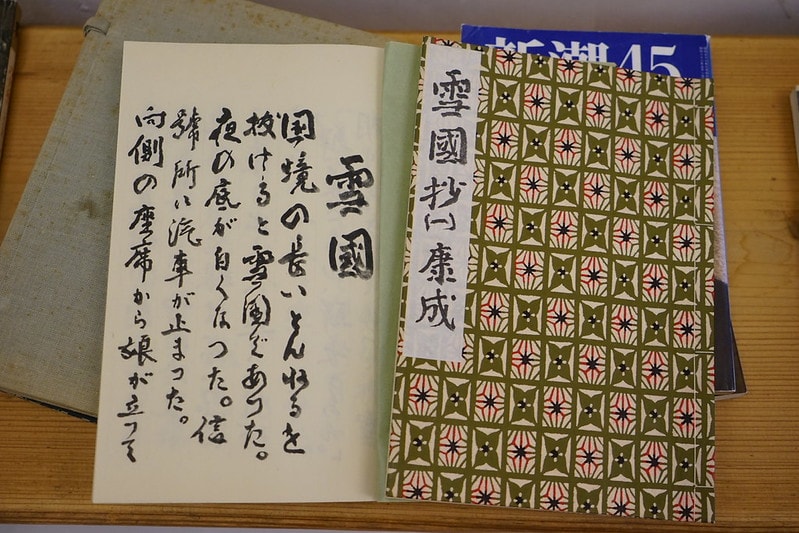 新潮45
雪國抄 康成
雪國
国境の長いとんねるを
抜けると雪国であつた。
夜の底が白くなつた。信
號所に汽車が止まつた。
向側の座席から娘が立つて